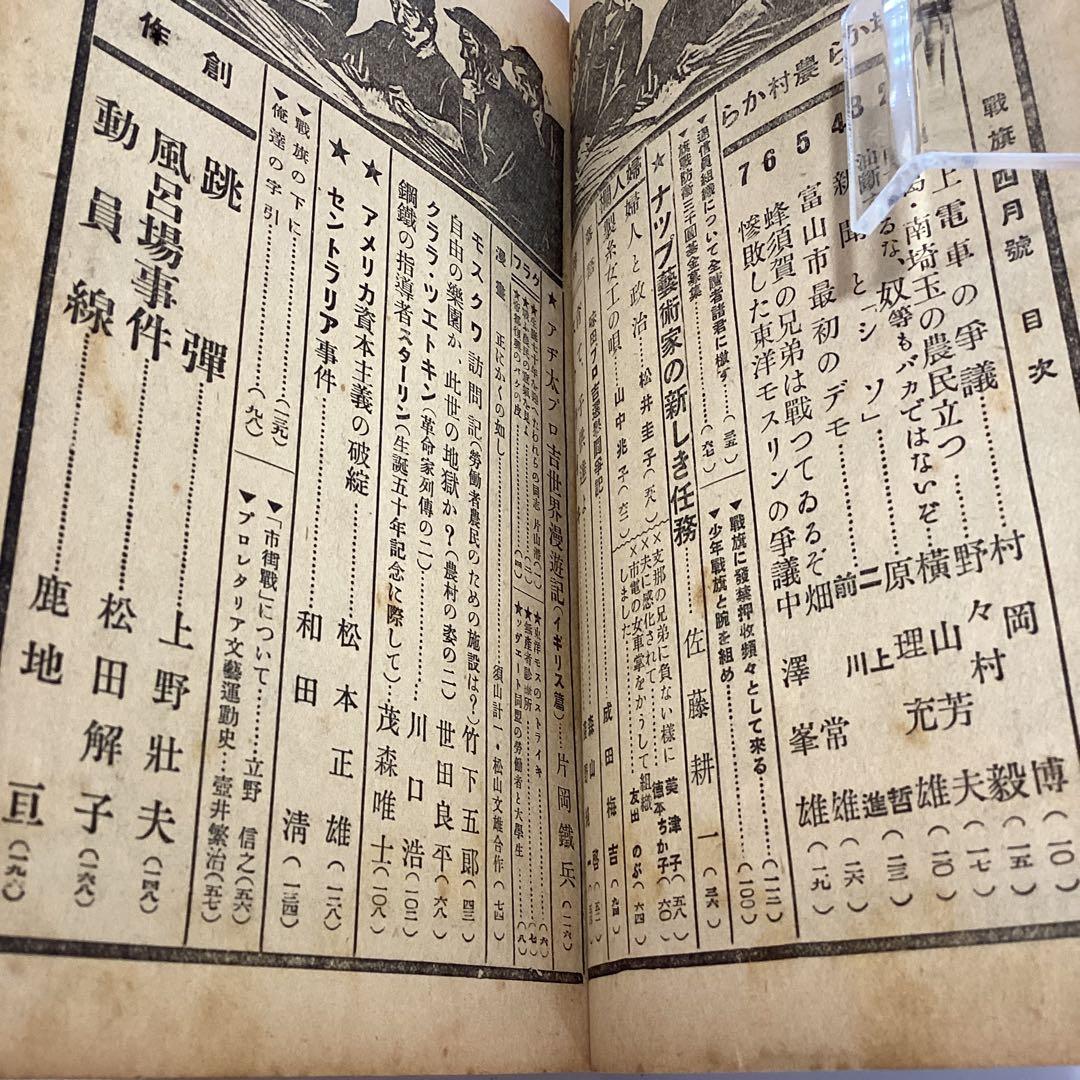 戰旗四月號 目次
らか村農らか
上電車の爭議……村岡博(一〇)
南埼玉の農民立つ……野々村毅(一五)
るな、奴等もバカではないぞ……横山芳夫(一七)
4 新聞と「シソ」……原理充雄
5 富山市最初のデモ……二上哲(二三)
前川進
6 蜂須賀の兄弟は戰つてゐるぞ……畑常雄(二六)
7 慘敗した東洋モスリンの爭議中……澤峯雄(一九)
▼通信員組織について全讀者諸君に檄す……(三五)
▼旗戰防衞三千圓基金募集……(六七)
▼戰旗に發禁押收頻々として來る……(一一二)
▼少年戰旗と腕を組め……(一〇〇)
★ナツプ藝術家の新しき任務……佐藤耕一(三六)
婦人欄
婦人と政治……松井圭子(五八)
製糸女工の唄……山中兆子(六二)
×支那の兄弟に負ない樣に……美津子(五八)
×夫に感化されて……德本ちか子(六〇)
×市電の女車掌をかうして組織しました……友田のぶ(六四)
成田梅吉(九四)
★アヂ太プロ吉世界漫遊記(イギリス篇)……片岡鐵兵(一一六)
グラフ
われらの同志 片山潜(一)
(四)
★東洋モスのストライキ……(六)
★無産者診療所……(七)
★ソヴエート同盟の勞働者と大學生……(八)
漫畫 正にかくの如し……須山計一・松山文雄合作(七四)
モスクワ訪問記(勞働者農民のための施設は?)竹下五郎(四三)
自由の樂園か、此世の地獄か?(農村の姿の二)世田良平(六八)
クララ・ツエトキン(革命家列傳の二)……川口浩(一〇二)
鋼鐵の指導者スターリン(生誕五十年記念に際して)茂森唯士(一〇八)
★アメリカ資本主義の破綻……松本正雄(一二八)
★セントラリア事件……和田清(一三四)
▼戰旗の下に……(一三九)
▼俺達の字引……(九八)
▼「市街戰」について……立野信之(五六)
▼プロレタリア文藝運動史……壺井繁治(五七)
作創
跳彈……上野壯夫(一四八)
風呂場事件……松田解子(一六八)
動員線……鹿地亘(一九〇)